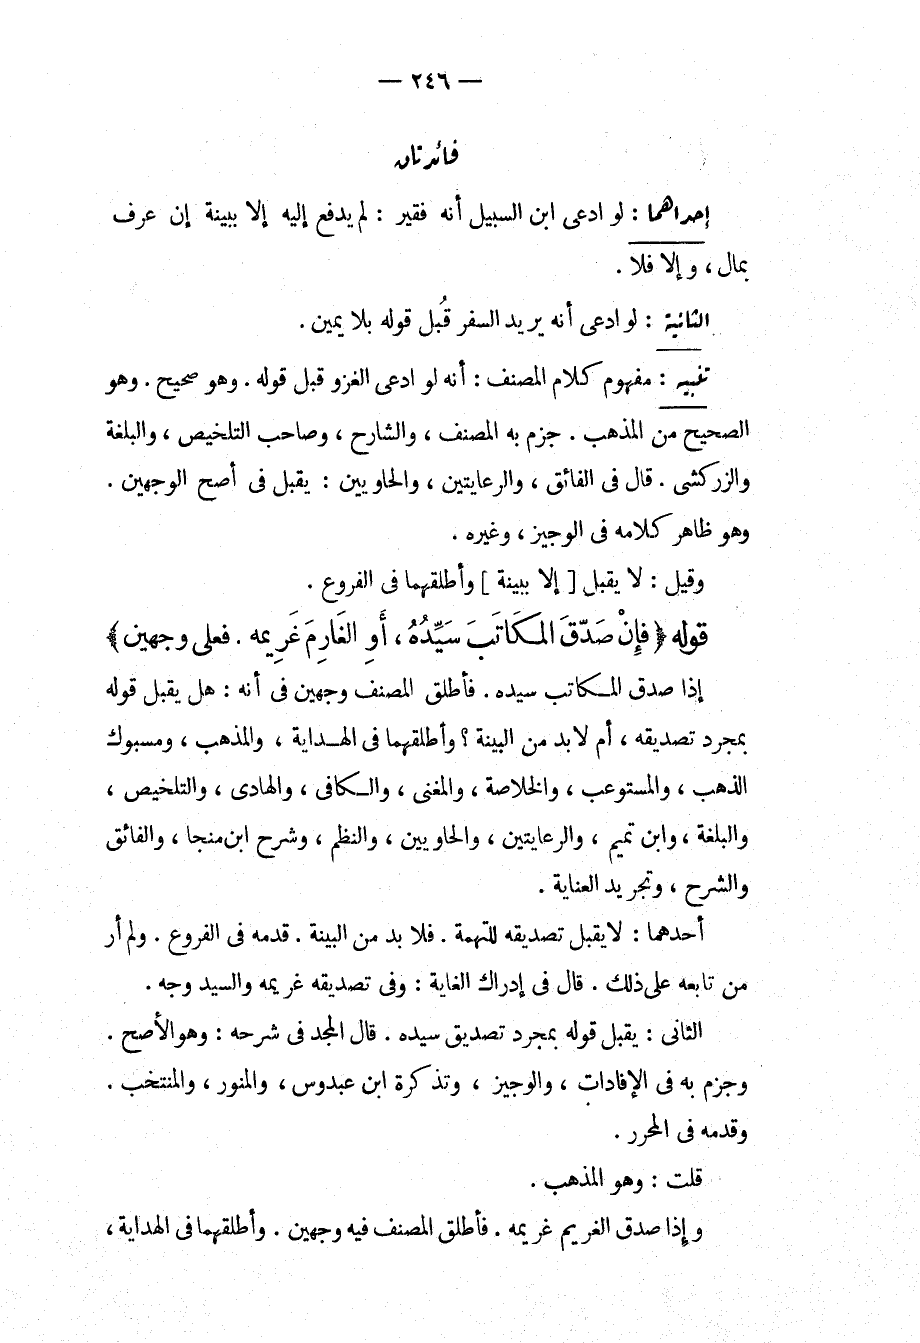 — ٢٤٦ —
فائدتان
إحداهما : لو ادعى ابن السبيل أنه فقير : لم يدفع إليه إلا ببينة إن عرف
بمال ، وإلا فلا .
الثانية : لو ادعى أنه يريد السفر قُبل قوله بلا يمين .
تنبيه : مفهوم كلام المصنف : أنه لو ادعى الغزو قبل قوله . وهو صحيح . وهو
الصحيح من المذهب . جزم به المصنف ، والشارح ، وصاحب التلخيص ، والبلغة
والزركشى . قال فى الفائق ، والرعايتين ، والحاويين : يقبل فى أصح الوجهين .
وهو ظاهر كلامه فى الوجيز ، وغيره .
وقيل : لا يقبل [ إلا ببينة ] وأطلقهما فى الفروع .
قوله ﴿ فَإِنْ صَدّقَ المكَاتَبَ سَيِّدُهُ ، أَوِ الغَارِمَ غَرِيمه . فعلى وجهين ﴾
إذا صدق المكاتب سيده . فأطلق المصنف وجهين فى أنه : هل يقبل قوله
بمجرد تصديقه ، أم لابد من البينة ؟ وأطلقهما فى الهداية ، والمذهب ، ومسبوك
الذهب ، والمستوعب ، والخلاصة ، والمغنى ، والكافى ، والهادى ، والتلخيص ،
والبلغة ، وابن تميم ، والرعايتين ، والحاويين ، والنظم ، وشرح ابن منجا ، والفائق
والشرح ، وتجريد العناية .
أحدهما : لا يقبل تصديقه للتهمة . فلا بد من البينة . قدمه فى الفروع . ولم أر
من تابعه على ذلك . قال فى إدراك الغاية : وفى تصديقه غريمه والسيد وجه .
الثانى : يقبل قوله بمجرد تصديق سيده . قال المجد فى شرحه : وهو الأصح .
وجزم به فى الإفادات ، والوجيز ، وتذكرة ابن عبدوس ، والمنور ، والمنتخب .
وقدمه فى المحرر .
قلت : وهو المذهب .
وإذا صدق الغريم غريمه . فأطلق المصنف فيه وجهين . وأطلقهما فى الهداية ،